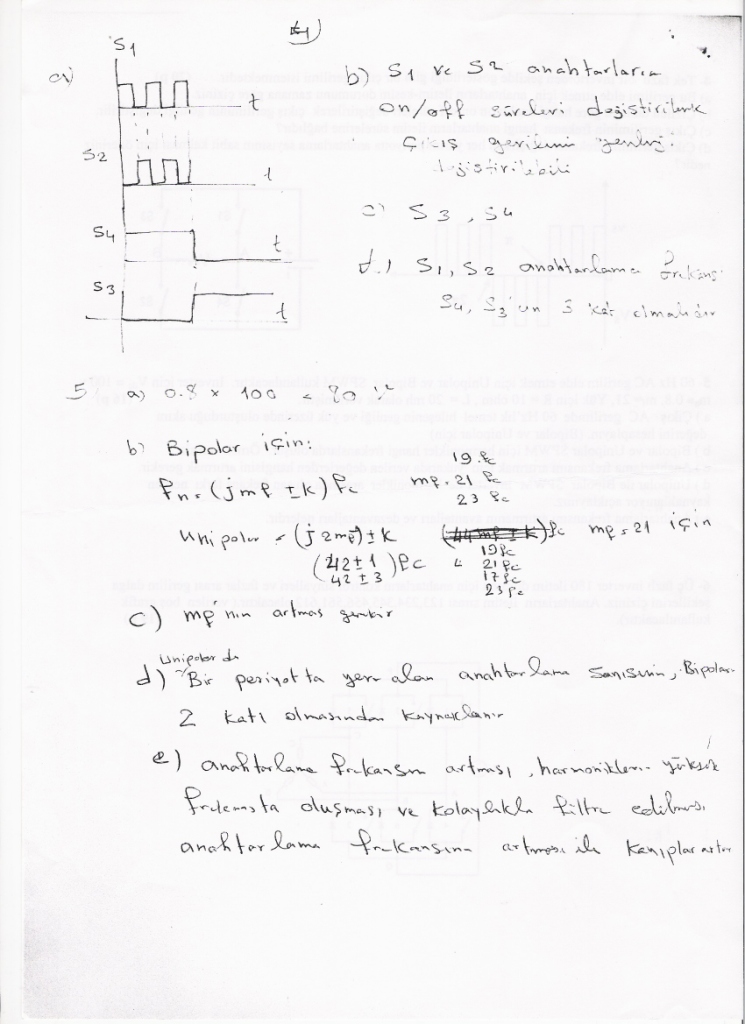 4)
a)
S1
t
S2
t
S4
t
S3
t
b) S1 ve S2 anahtarların
on/off süreleri değiştirilerek
çıkış gerilimi
değiştirilebilir
c) S3, S4
d) S1, S2 anahtarlama frekansı
S4, S3'ün 3 kat olmalıdır
5 a) 0.8 x 100 = 80 V
b) Bipolar için:
fn = (jmf ± k) fc mf = 21 19 fc 21 fc 23 fc
Unipolar = (j2mf) ± k mf = 21 için
(42 ± 1) fc
42 ± 3
19 fc
21 fc
17 fc
23 fc
c) mf'nin artması gerekir
Unipolar da
d) Bir periyotta yer alan anahtarlama sayısının, Bipolar
2 katı olmasından kaynaklanır
e) anahtarlama frekansın artması, harmoniklerin yüksek
frekansta oluşması ve kolaylıkla filtre edilmesi
anahtarlama frekansının artması ile kayıplar artar